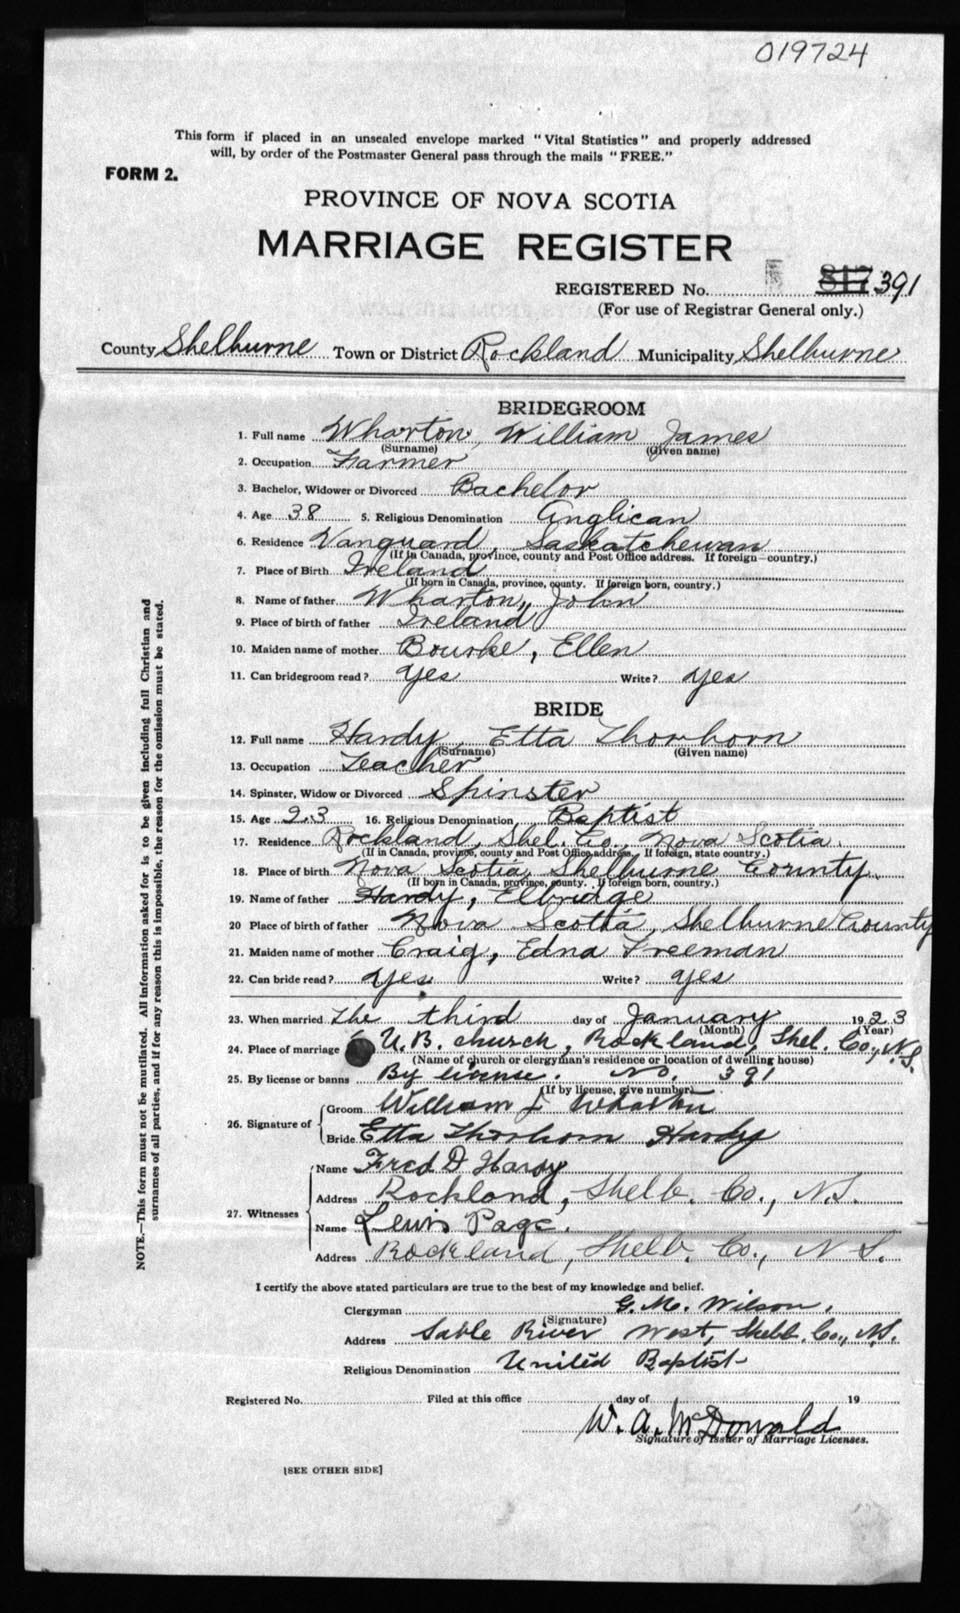 019724
This form if placed in an unsealed envelope marked "Vital Statistics" and properly addressed
will, by order of the Postmaster General pass through the mails "FREE."
FORM 2.
PROVINCE OF NOVA SCOTIA
MARRIAGE REGISTER
REGISTERED No. 817 391
(For use of Registrar General only.)
County Shelburne Town or District Rockland Municipality Shelburne
BRIDEGROOM
1. Full name Wharton, William James
(Surname) (Given name)
2. Occupation Farmer
3. Bachelor, Widower or Divorced Bachelor
4. Age 38 5. Religious Denomination Anglican
6. Residence Vanguard, Saskatchewan
(If in Canada, province, county and Post Office address. If foreign—country.)
7. Place of Birth Ireland
(If born in Canada, province, county. If foreign born, country.)
8. Name of father Wharton, John
9. Place of birth of father Ireland
10. Maiden name of mother Bourke, Ellen
11. Can bridegroom read? yes Write? yes
BRIDE
12. Full name Hardy, Etta Thorborn
(Surname) (Given name)
13. Occupation Teacher
14. Spinster, Widow or Divorced Spinster
15. Age 23 16. Religious Denomination Baptist
17. Residence Rockland, Shel. Co., Nova Scotia.
(If in Canada, province, county and Post Office address. If foreign, state country.)
18. Place of birth Nova Scotia, Shelburne County
(If born in Canada, province, county. If foreign born, country.)
19. Name of father Hardy, Elbridge
20 Place of birth of father Nova Scotia, Shelburne County
21. Maiden name of mother Craig, Edna Freeman
22. Can bride read? yes Write? yes
23. When married the third day of January 1923
(Month) (Year)
24. Place of marriage U. B. church, Rockland, Shel. Co., N.S.
(Name of church or clergyman's residence or location of dwelling house)
25. By license or banns By license. No. 391
(If by license, give number)
26. Signature of
Groom William J Wharton
Bride Etta Thorborn Hardy
27. Witnesses
Name Fred D Hardy
Address Rockland, Shelb. Co., N.S.
Name Lewis Page.
Address Rockland, Shelb. Co., N S.
I certify the above stated particulars are true to the best of my knowledge and belief.
Clergyman G. M. Wilson.
(Signature)
Address Sable River West, Shelb. Co., N.S.
Religious Denomination United Baptist
Registered No. Filed at this office day of 19
W. A. McDonald
Signature of Issuer of Marriage Licenses.
[SEE OTHER SIDE]
NOTE.—This form must not be mutilated. All information asked for is to be given including full Christian and
surnames of all parties, and if for any reason this is impossible, the reason for the omission must be stated.